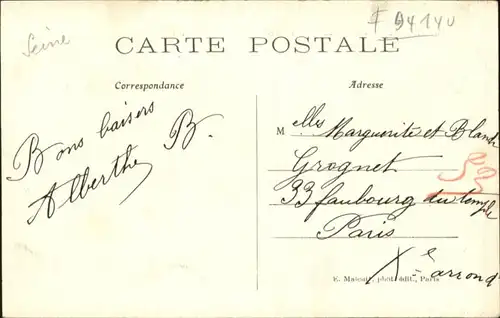 Seine
F 94140
CARTE POSTALE
Correspondance
Adresse
Bons baisers
Alberthe B.
Melles Marguerite et Blanche
Grognet
33 faubourg du temple
Paris
Xe arrond
phot. édit., Paris